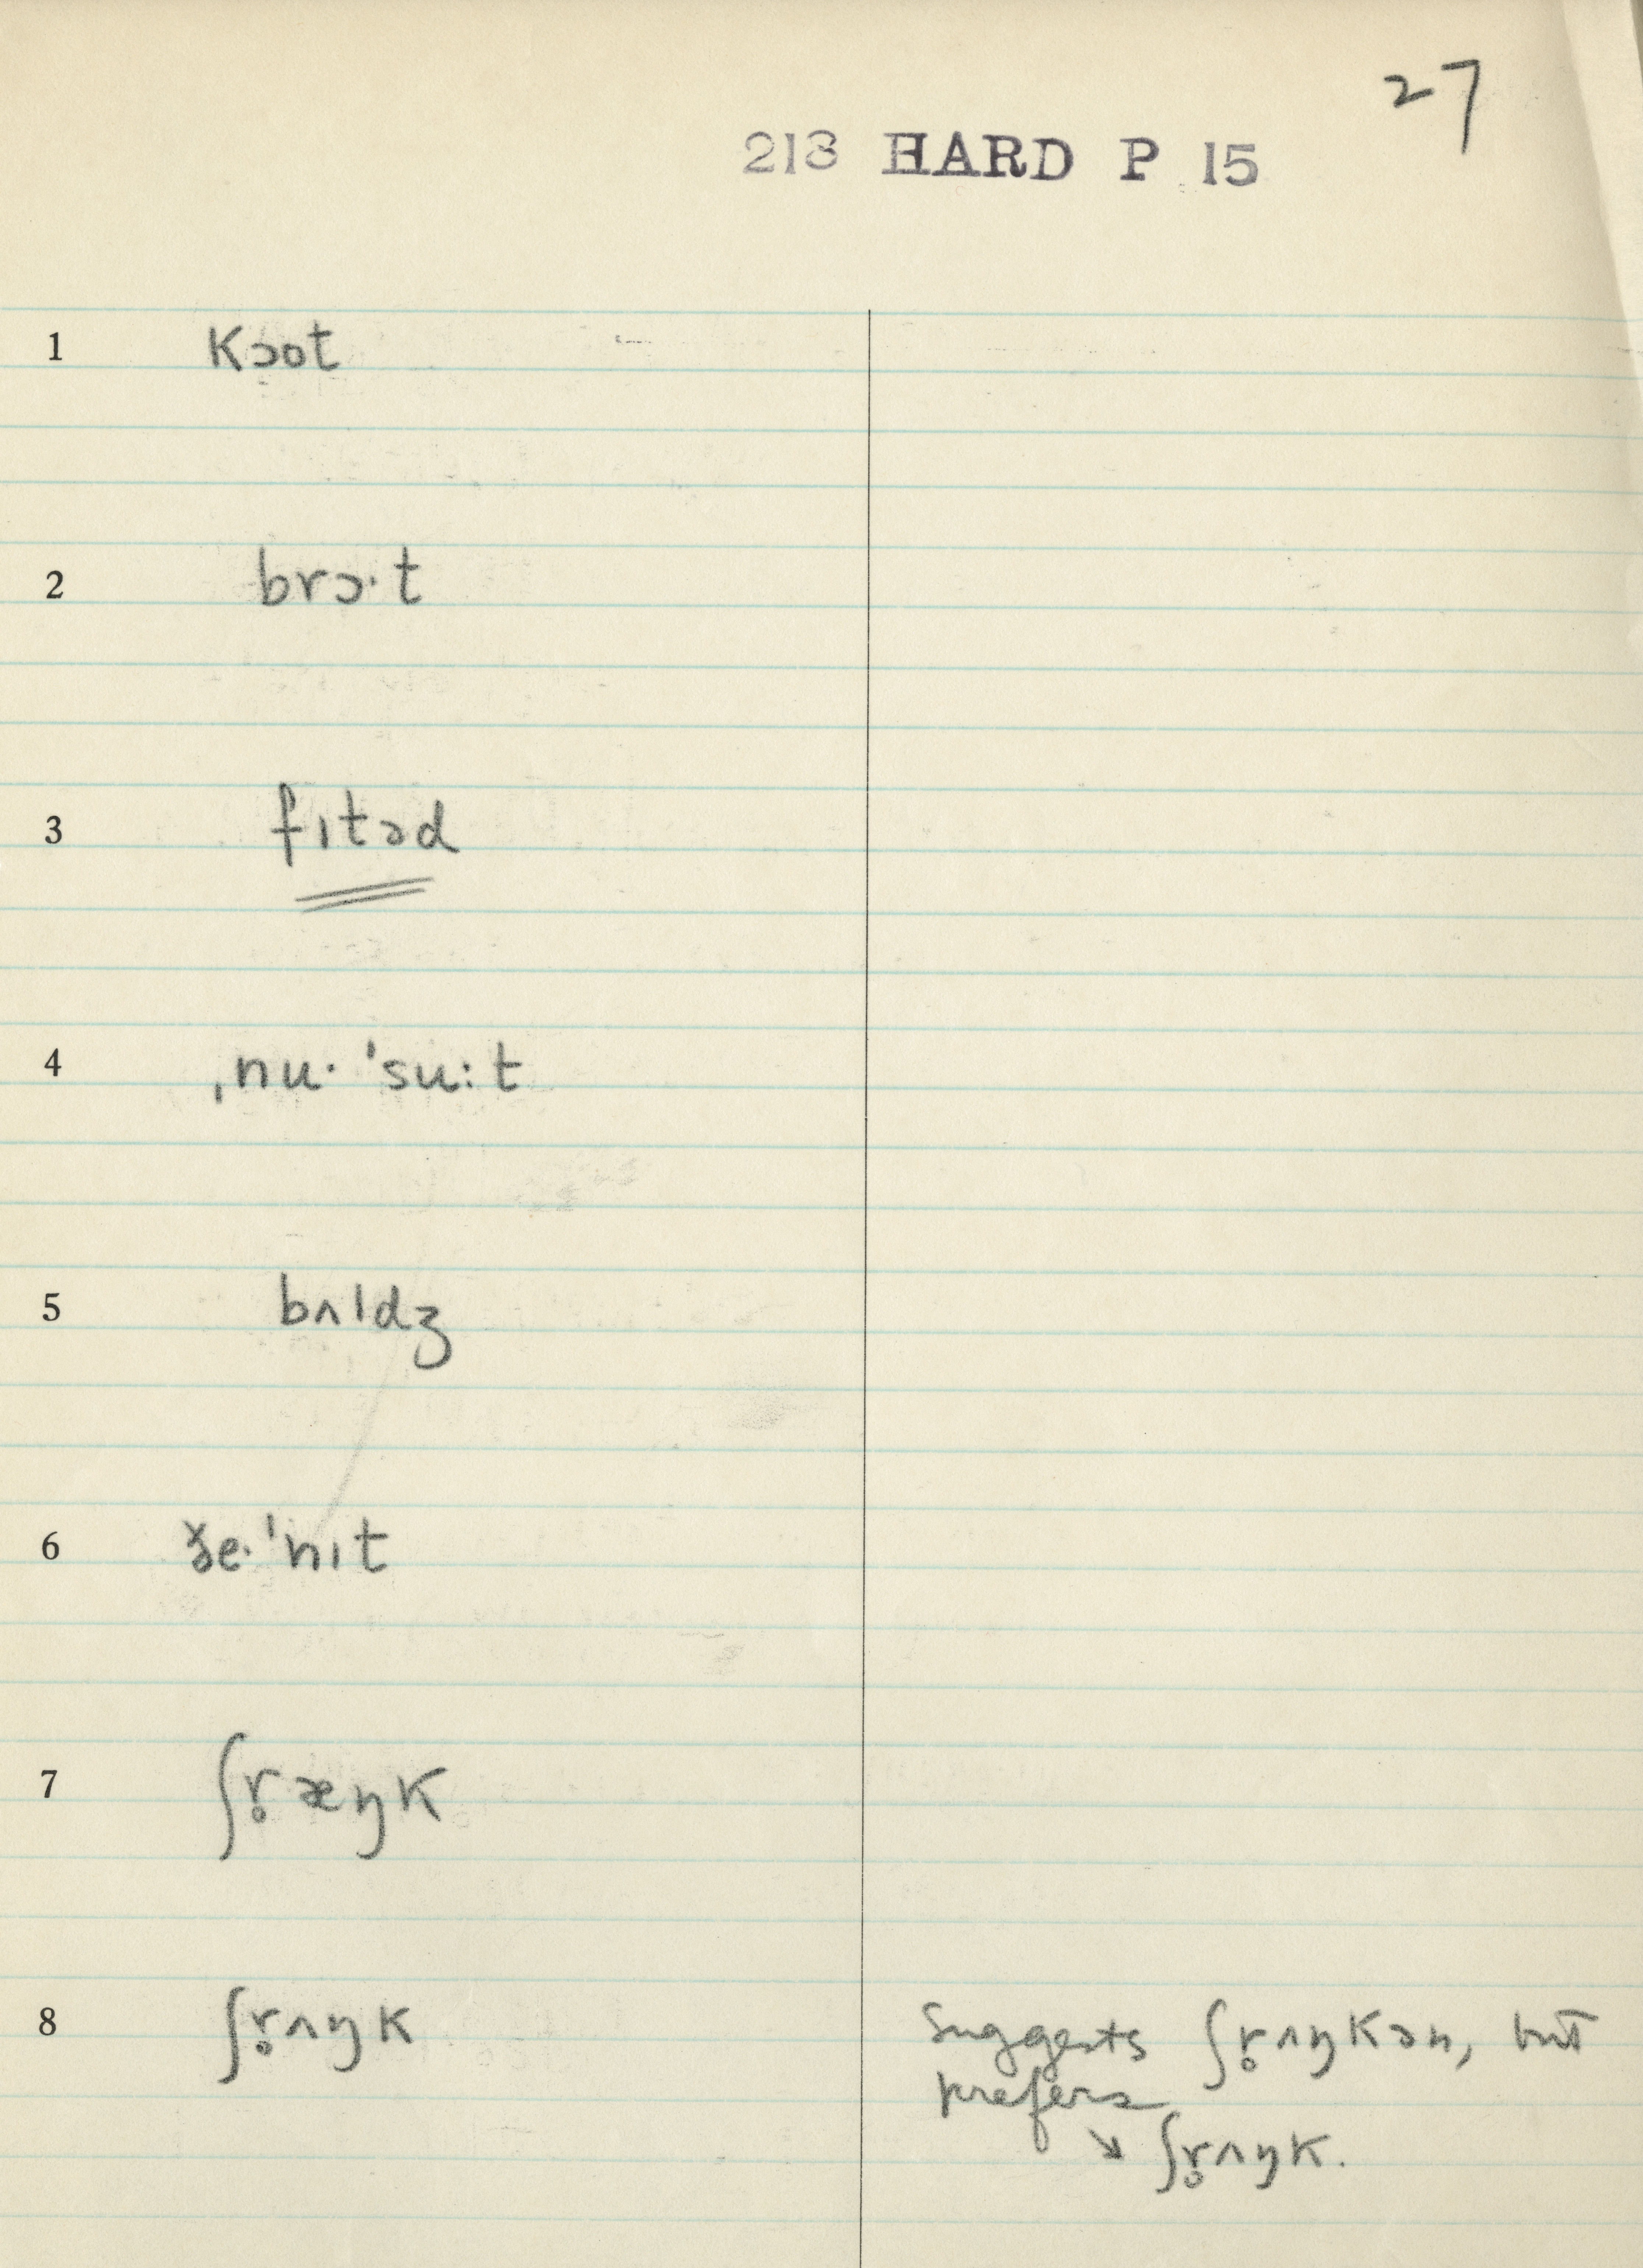 27
218 HARD P 15
1 kɔot
2 brɔ·t
3 fɪtəd
4 ˌnu· ˈsu:t
5 bʌldʒ
6 ðe·ˈnɪt
7 ʃr̥æŋk
8 ʃr̥ʌŋk Suggests ʃr̥ʌŋkən, but
prefers
↘ ʃr̥ʌŋk.